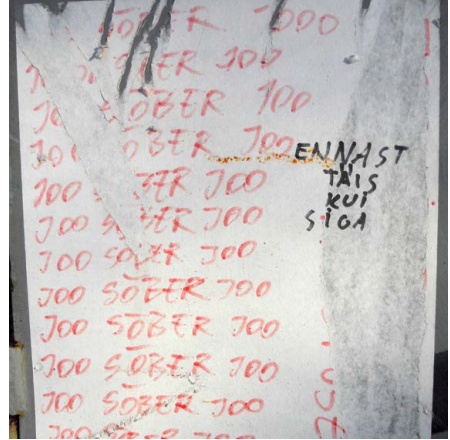 JOO
JOO
SÕBER JOO
JOO SÕBER JOO
JOO SÕBER JOO
JOO SÕBER JOO
JOO SÕBER JOO
JOO SÕBER JOO
JOO SÕBER JOO
JOO SÕBER JOO
JOO SÕBER JOO
JOO SÕBER JOO
ENNAST
TÄIS
KUI
SIGA